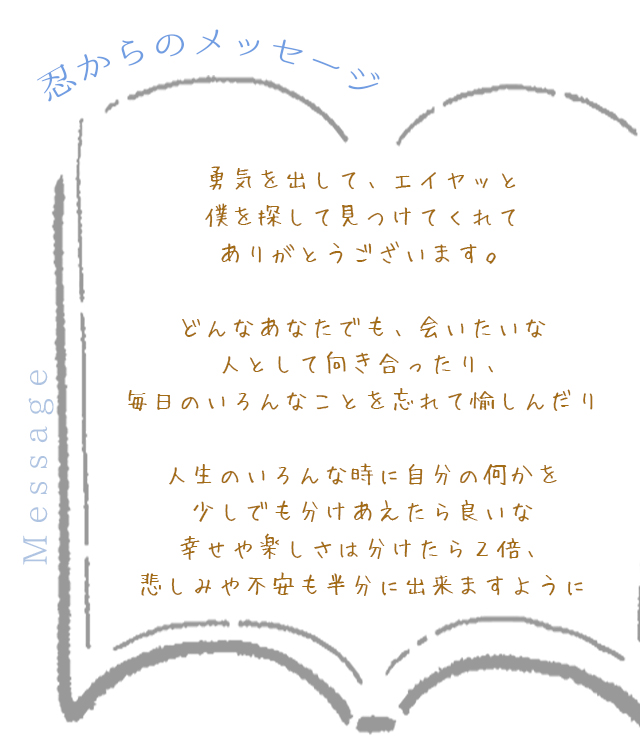 忍からのメッセージ
勇気を出して、エイヤッと
僕を探して見つけてくれて
ありがとうございます。
どんなあなたでも、会いたいな
人として向き合ったり、
毎日のいろんなことを忘れて愉しんだり
人生のいろんな時に自分の何かを
少しでも分けあえたら良いな
幸せや楽しさは分けたら２倍、
悲しみや不安も半分に出来ますように
Message